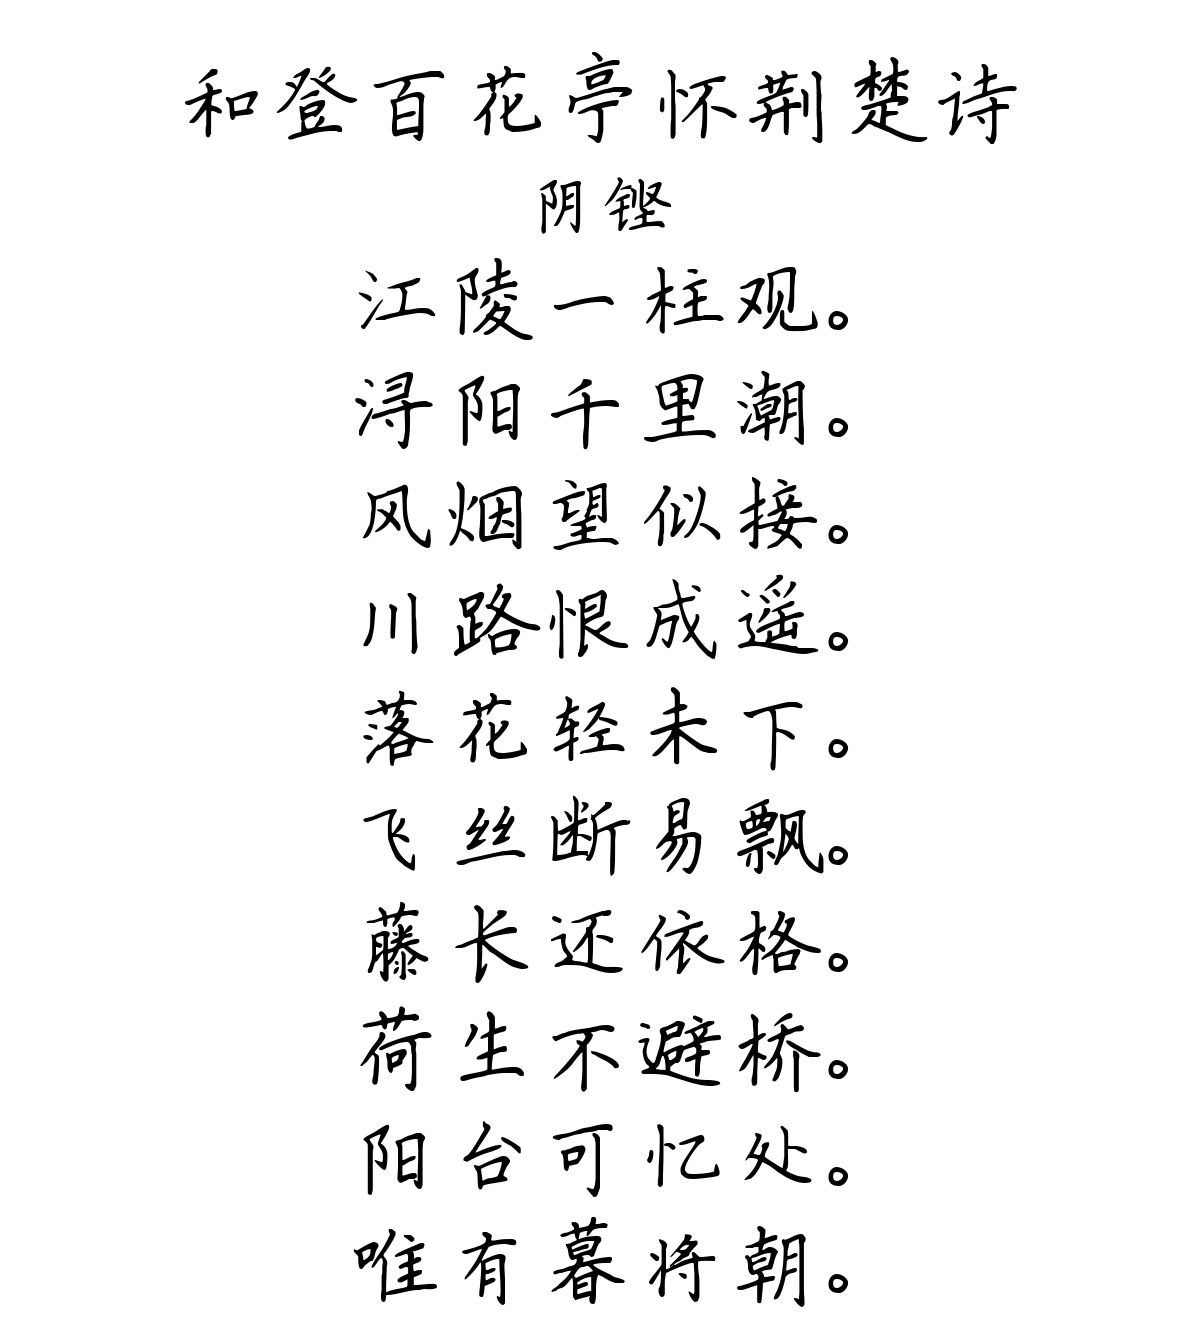 和登百花亭怀荆楚诗
阴铿
江陵一柱观。
浔阳千里潮。
风烟望似接。
川路恨成遥。
落花轻未下。
飞丝断易飘。
藤长还依格。
荷生不避桥。
阳台可忆处。
唯有暮将朝。